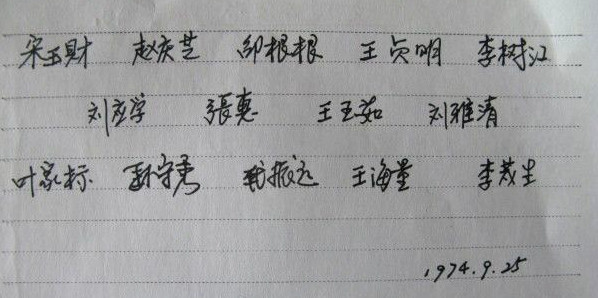 宋玉財 赵庆芝 邵根根 王贞明 李树江
刘应学 張惠 王玉茹 刘雅清
叶家标 孙守勇 振远 王海量 李茂生
1974.9.25